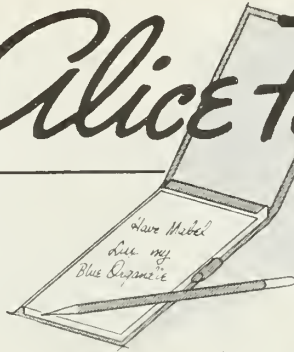 Alice
Have Mabel
Lux my
Blue Organdie